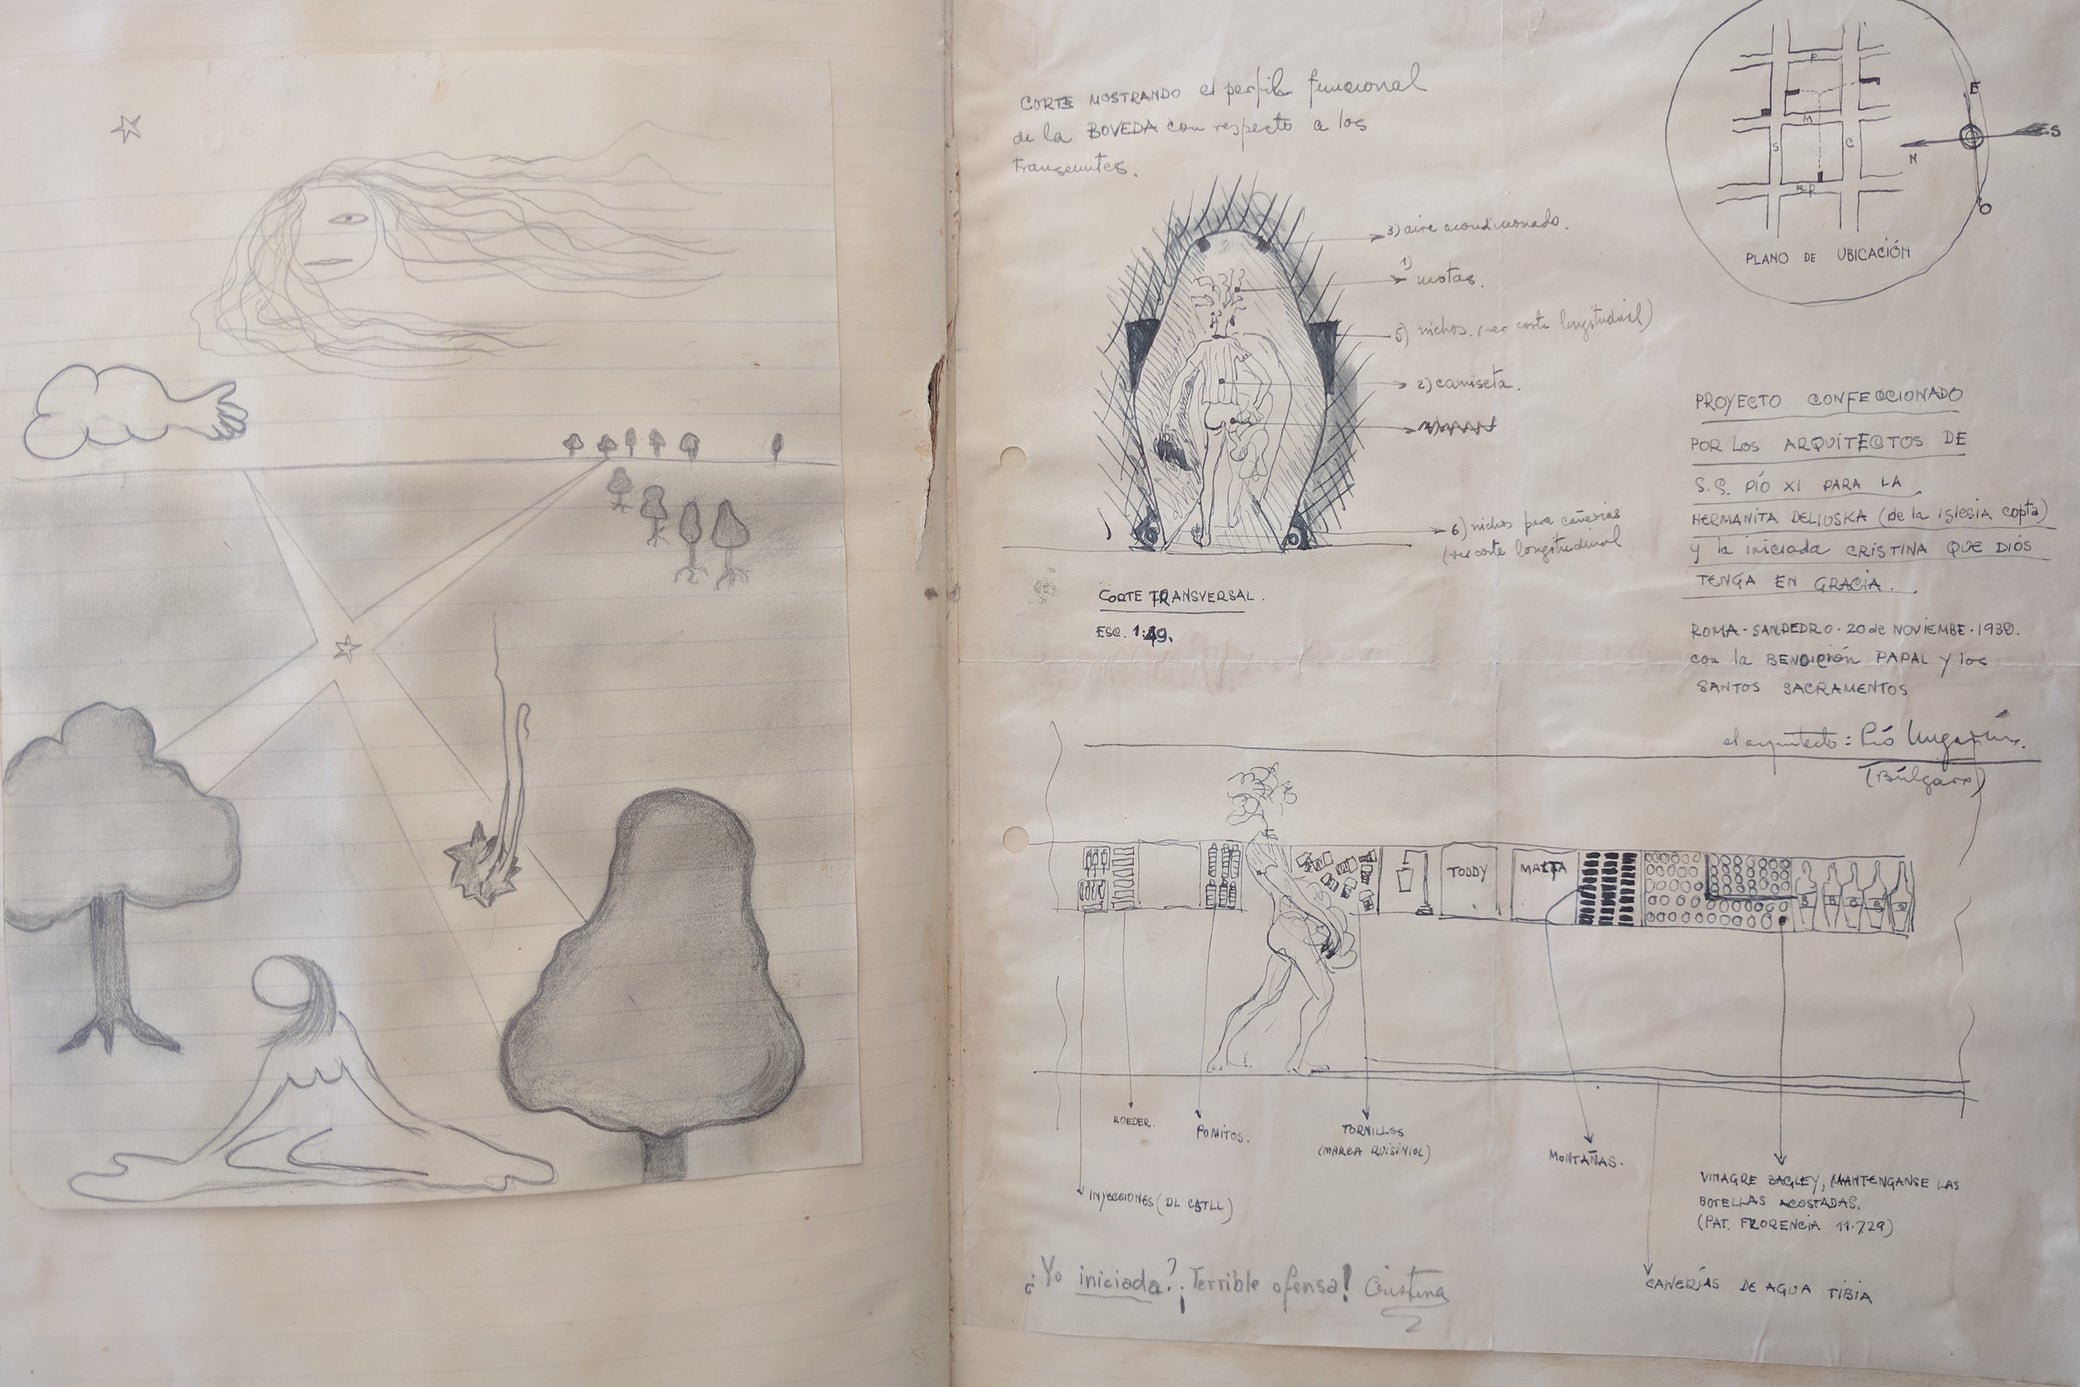 CORTE MOSTRANDO el perfil funcional
de la BOVEDA con respecto a los
transeuntes.
3) aire acondicionado.
1) motas.
5) nichos. (ver corte longitudinal)
2) camiseta.
6) nichos para cañerias
(ver corte longitudinal
CORTE TRANSVERSAL.
ESC. 1:49.
P
M
S
C
R.P.
E
S
N
O
PLANO DE UBICACIÓN
PROYECTO CONFECCIONADO
POR LOS ARQUITECTOS DE
S.S. PÍO XI PARA LA
HERMANITA DELIUSKA (de la iglesia copta)
y la iniciada CRISTINA QUE DIOS
TENGA EN GRACIA.
ROMA - SAN PEDRO - 20 de NOVIEMBE - 1930.
con la BENDICIÓN PAPAL y los
SANTOS SACRAMENTOS
el arquitecto: Pió
(Búlgaro)
TODDY
MALTA
ROEDER.
POMITOS.
TORNILLOS
(MARCA RUISINIOL)
MONTAÑAS.
INYECCIONES (DL CSTLL)
VINAGRE BAGLEY, MANTENGANSE LAS
BOTELLAS ACOSTADAS.
(PAT. FLORENCIA 11.729)
CAÑERÍAS DE AGUA TIBIA
¿Yo iniciada? ¡Terrible ofensa! Cristina